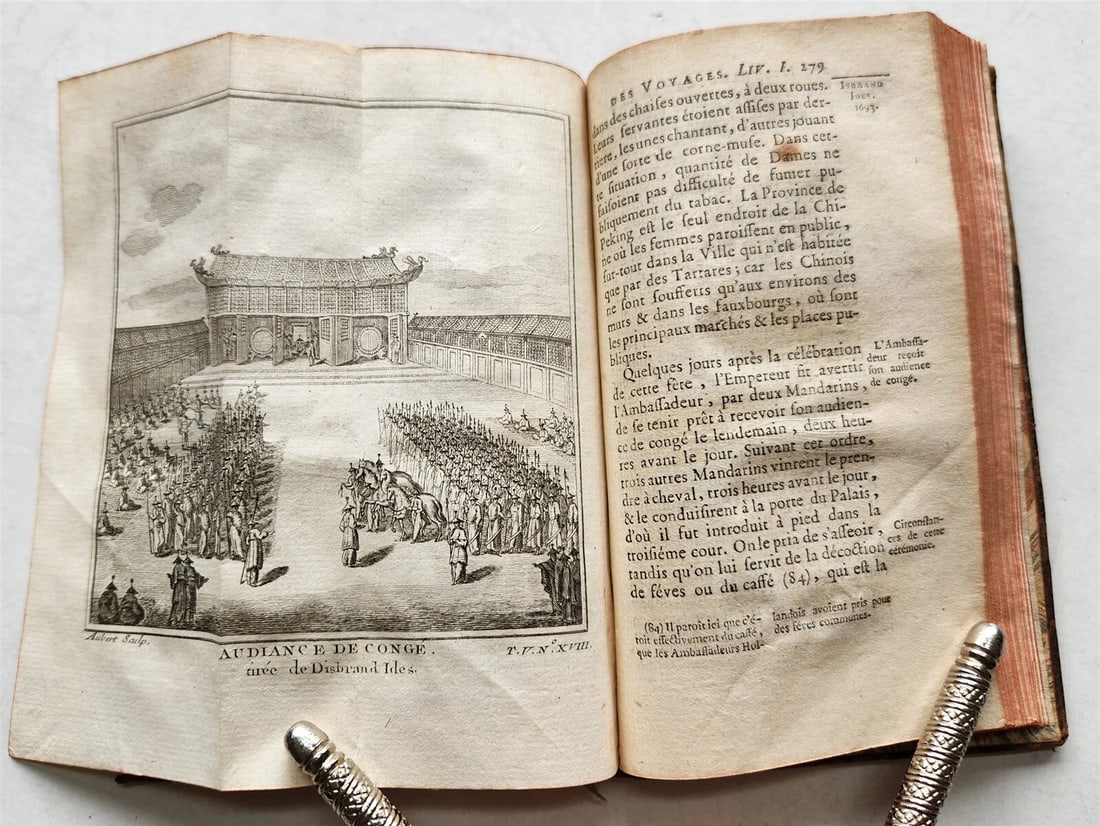 Aubert Sculp.
AUDIANCE DE CONGÉ.
T.V. Nº. XVIII.
tirée de Disbrand Ides.
DES VOYAGES. LIV. I. 279
ISBRAND
IDES.
1693.
dans des chaises ouvertes, à deux roues.
Leurs servantes étoient assises par der-
riere, les unes chantant, d'autres jouant
d'une sorte de corne-muse. Dans cet-
te situation, quantité de Dames ne
faisoient pas difficulté de fumer pu-
bliquement du tabac. La Province de
Peking est le seul endroit de la Chi-
ne où les femmes paroissent en public,
sur-tout dans la Ville qui n'est habitée
que par des Tartares; car les Chinois
ne sont soufferts qu'aux environs des
murs & dans les fauxbourgs, où sont
les principaux marchés & les places pu-
bliques.
Quelques jours après la célébration
de cette fête, l'Empereur fit avertir
l'Ambassadeur, par deux Mandarins,
de se tenir prêt à recevoir son audien-
ce de congé le lendemain, deux heu-
res avant le jour. Suivant cet ordre,
trois autres Mandarins vinrent le pren-
dre à cheval, trois heures avant le jour,
& le conduisirent à la porte du Palais,
d'où il fut introduit à pied dans la
troisiéme cour. On le pria de s'asseoir,
tandis qu'on lui servit de la décoction
de féves ou du caffé (84), qui est la
L'Ambassa-
deur reçoit
son audience
de congé.
Circonstan-
ces de cette
cérémonie.
(84) Il paroît ici que c'é-
toit effectivement du caffé,
que les Ambassadeurs Hol-
landois avoient pris pour
des féves communes.